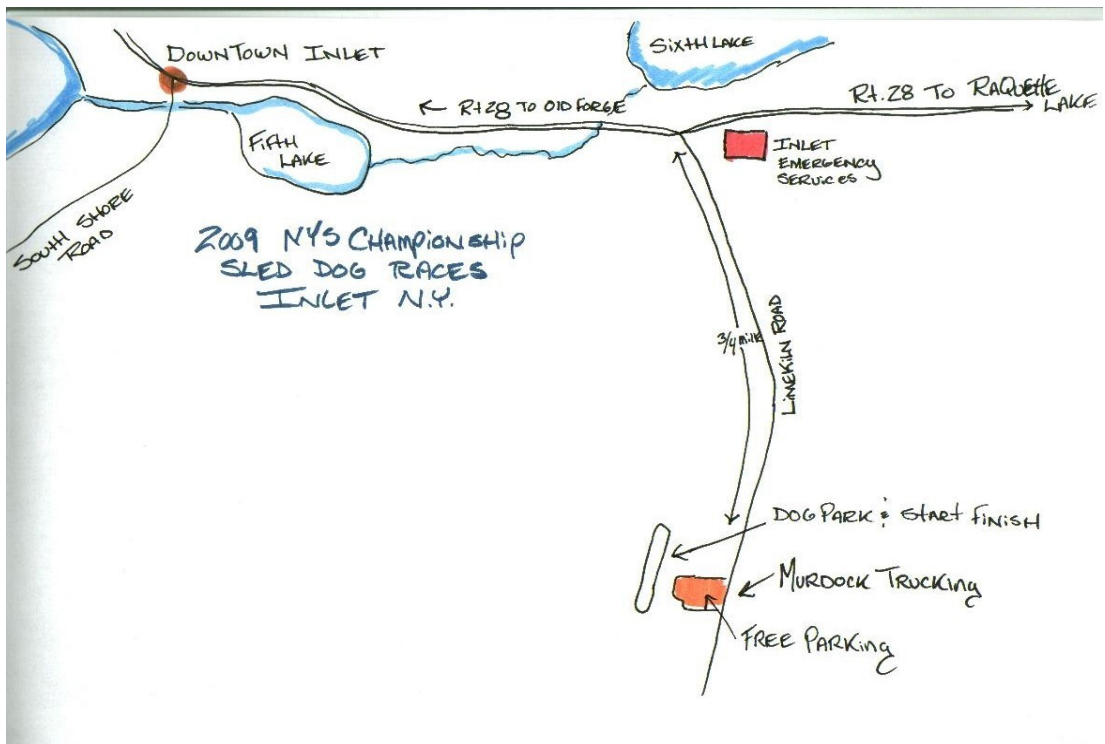 DOWNTOWN INLET
SIXTH LAKE
Rt. 28 TO RAQUETTE
LAKE
← Rt 28 TO OLD FORGE
FIFTH
LAKE
INLET
EMERGENCY
SERVICES
SOUTH SHORE
ROAD
2009 NYS CHAMPIONSHIP
SLED DOG RACES
INLET N.Y.
3/4 mile
LIMEKILN ROAD
DOG PARK & START FINISH
MURDOCK TRUCKING
FREE PARKING